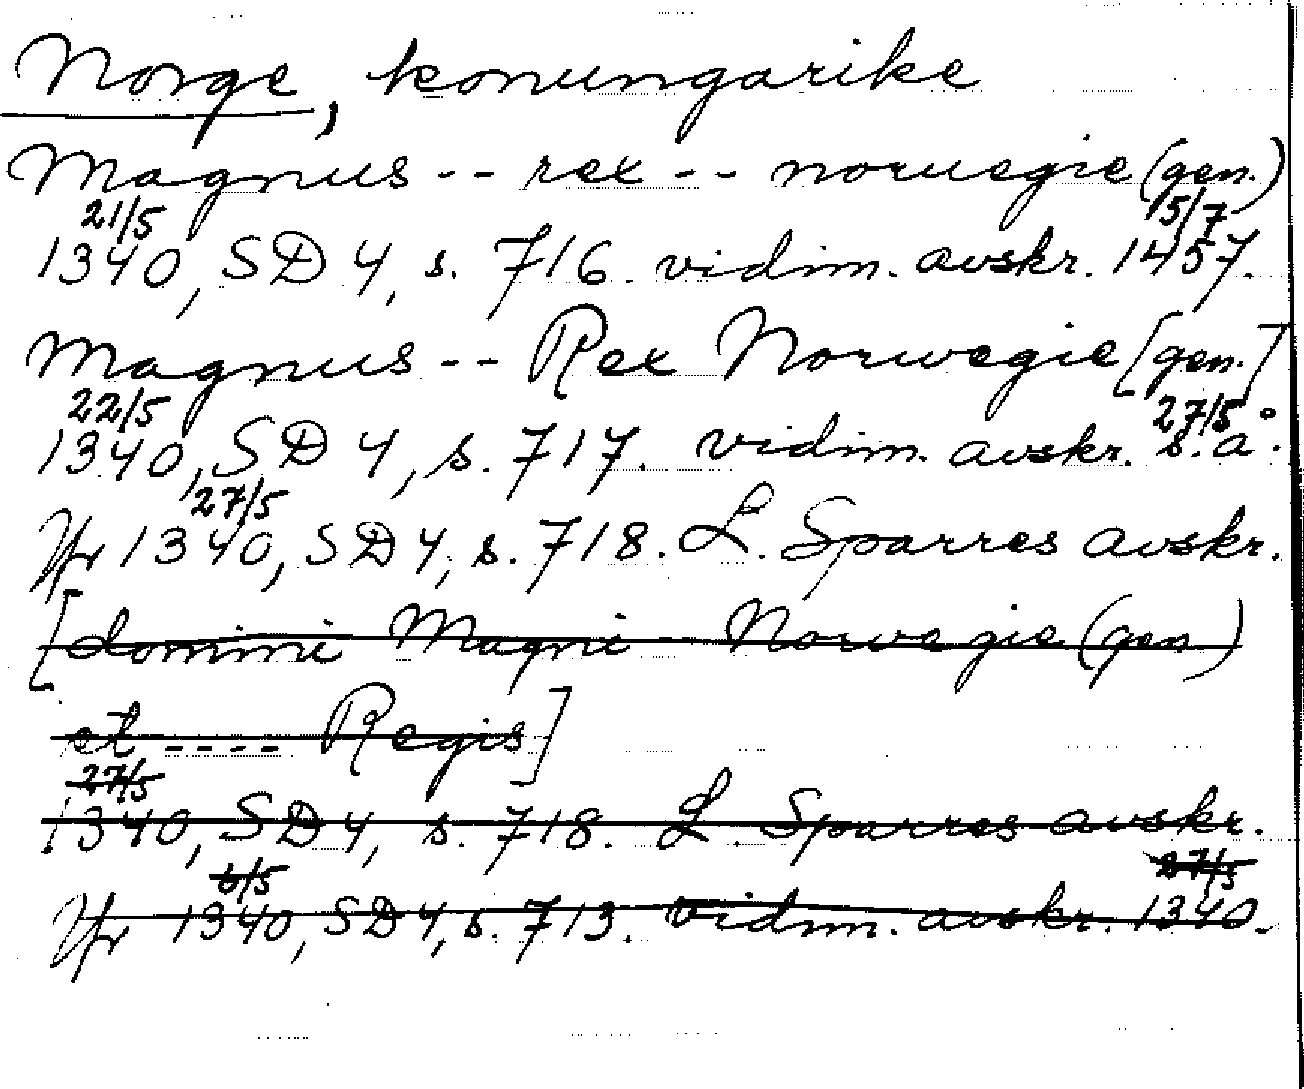 Norge, konungarike
Magnus -- rex -- noruegie (gen.)
21/5 15/7
1340, SD 4, s. 716. vidim. avskr. 1457.
Magnus -- Rex Norwegie [gen.]
22/5 27/5
1340, SD 4, s. 717. vidim. avskr. s.å.
27/5
Jfr 1340, SD 4, s. 718. L. Sparres avskr.
[domini Magni -- Norwegie (gen)
et ---- Regis]
27/5
1340, SD 4, s. 718. L. Sparres avskr.
6/5 27/5
Jfr 1340, SD 4, s. 713. vidim. avskr. 1340.